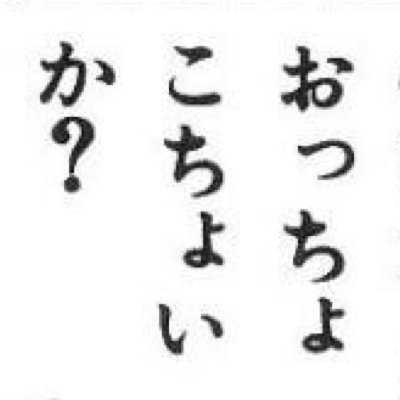 おっちょ
こちょい
か？